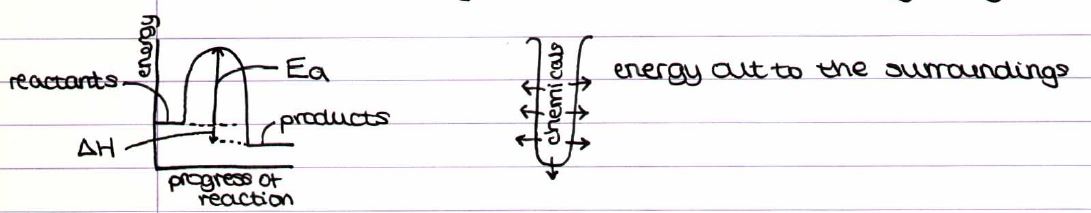 energy
reactants
Ea
products
ΔH
progress of
reaction
chemicals
energy out to the surroundings